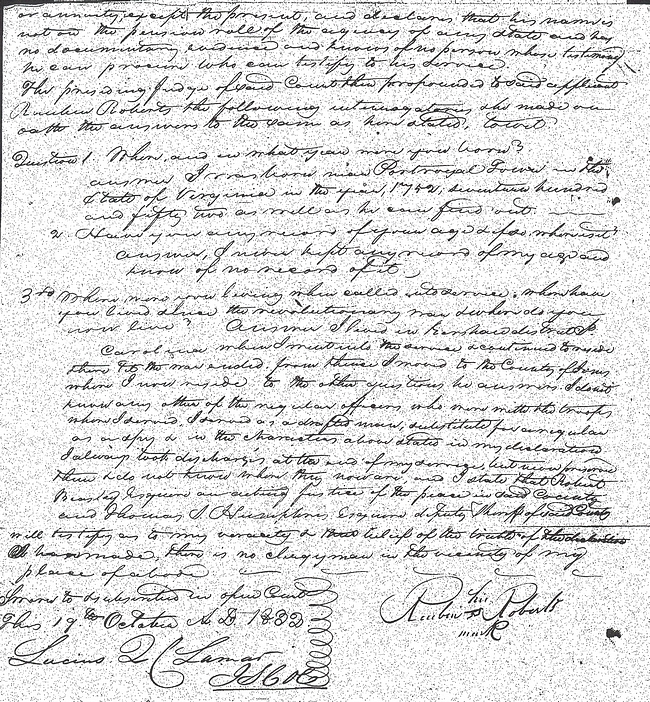 or annuity, except the present, and declares that his name is
not on the pension roll of the agency of any state and has
no documentary evidence and knows of no person whose testimony
he can procure who can testify to his service
The presiding Judge of said Court then propounded to said applicant
Reuben Roberts the following interrogatories & he made on
oath the answers to the same as here stated, towit.
Question 1. Where, and in what year were you born?
answer I was born near Portroyal Town in the
State of Virginia in the year, 1752, seventeen hundred
and fifty two as well as he can find out.
2. Have you any record of your age & if so where is it?
answer, I never kept any record of my age and
know of no record of it.
3rd Where were you living when called into service; where have
you lived since the revolutionary war & where do you
now live? Answer I lived in Kershaw district So
Carolina when I went into the service & continued to reside
there till the war ended, from thence I moved to the County of Jones
where I now reside to the other questions he answers. I do not
know any other of the regular officers who were with the troops
where I served, I served as a drafted man, substitute for a regular
as a spy & in the characters above stated in my declaration
I always took discharges at the end of my service, but
them & do not know where they now are, and I state that Robert
Beasley Esquire an acting justice of the peace in said County
and Thomas S. Humphries Esquire deputy Sheriff of said County
will testify as to my veracity & their belief of the truth of the declaration
made, there is no clergyman in the vicinity of my
place of abode
Sworn to & subscribed in open Court
this 19th October A.D. 1832
Reuben his Roberts
mark
Lucius Q C Lamar